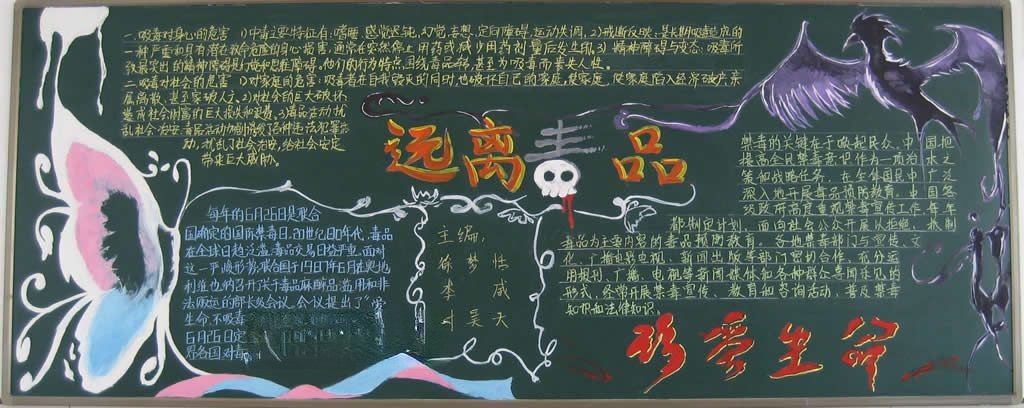 一.吸毒对身心的危害 1)中毒主要特征有:嗜睡、感觉迟钝、幻觉、妄想、定向障碍、运动失调。2)戒断反映:是长期吸毒造成的
一种严重和具有潜在致命危险的身心损害,通常在突然停止用药或减少用药剂量后发生。3)精神障碍与变态:吸毒所
致最突出的精神障碍是幻觉和思维障碍。他们的行为特点围绕毒品转,甚至为吸毒而丧失人性。
二.吸毒对社会的危害 1)对家庭的危害:吸毒者在自我毁灭的同时,也破坏自己的家庭,使家庭陷入经济破产、亲
属离散、甚至家破人亡。2)对社会
造成社会财富的巨大损失和
乱社会治安:毒品活动加剧诱发了各种违法犯罪活
动,扰乱了社会治安,给社会安定
带来巨大威胁。
远离毒品
每年的6月26日是联合
国确定的国际禁毒日。20世纪80年代,毒品
在全球日趋泛滥,毒品交易日益严重。面对
这一严峻形势,联合国于1987年6月在奥地
利维也纳召开了关于毒品麻醉品滥用和非
法贩运的部长级会议。会议提出了“爱
生命,不吸毒
6月26日定
界各国对毒
主编:
李 威
吴 天
禁毒的关键在于唤起民众。中国把
提高全民禁毒意识作为一项治本之
策和战略任务,在全体国民中广泛
深入地开展毒品预防教育。中国各
级政府高度重视禁毒宣传工作,每年
都制定计划,面向社会公众开展以拒绝
毒品为主要内容的毒品预防教育。各地禁毒部门与宣传、文
化、广播电影电视、新闻出版等部门密切合作,充分运
用报刊、广播、电视等新闻媒体和各种群众喜闻乐见的
形式,经常开展禁毒宣传、教育和咨询活动,普及禁毒
知识和法律知识。
珍爱生命